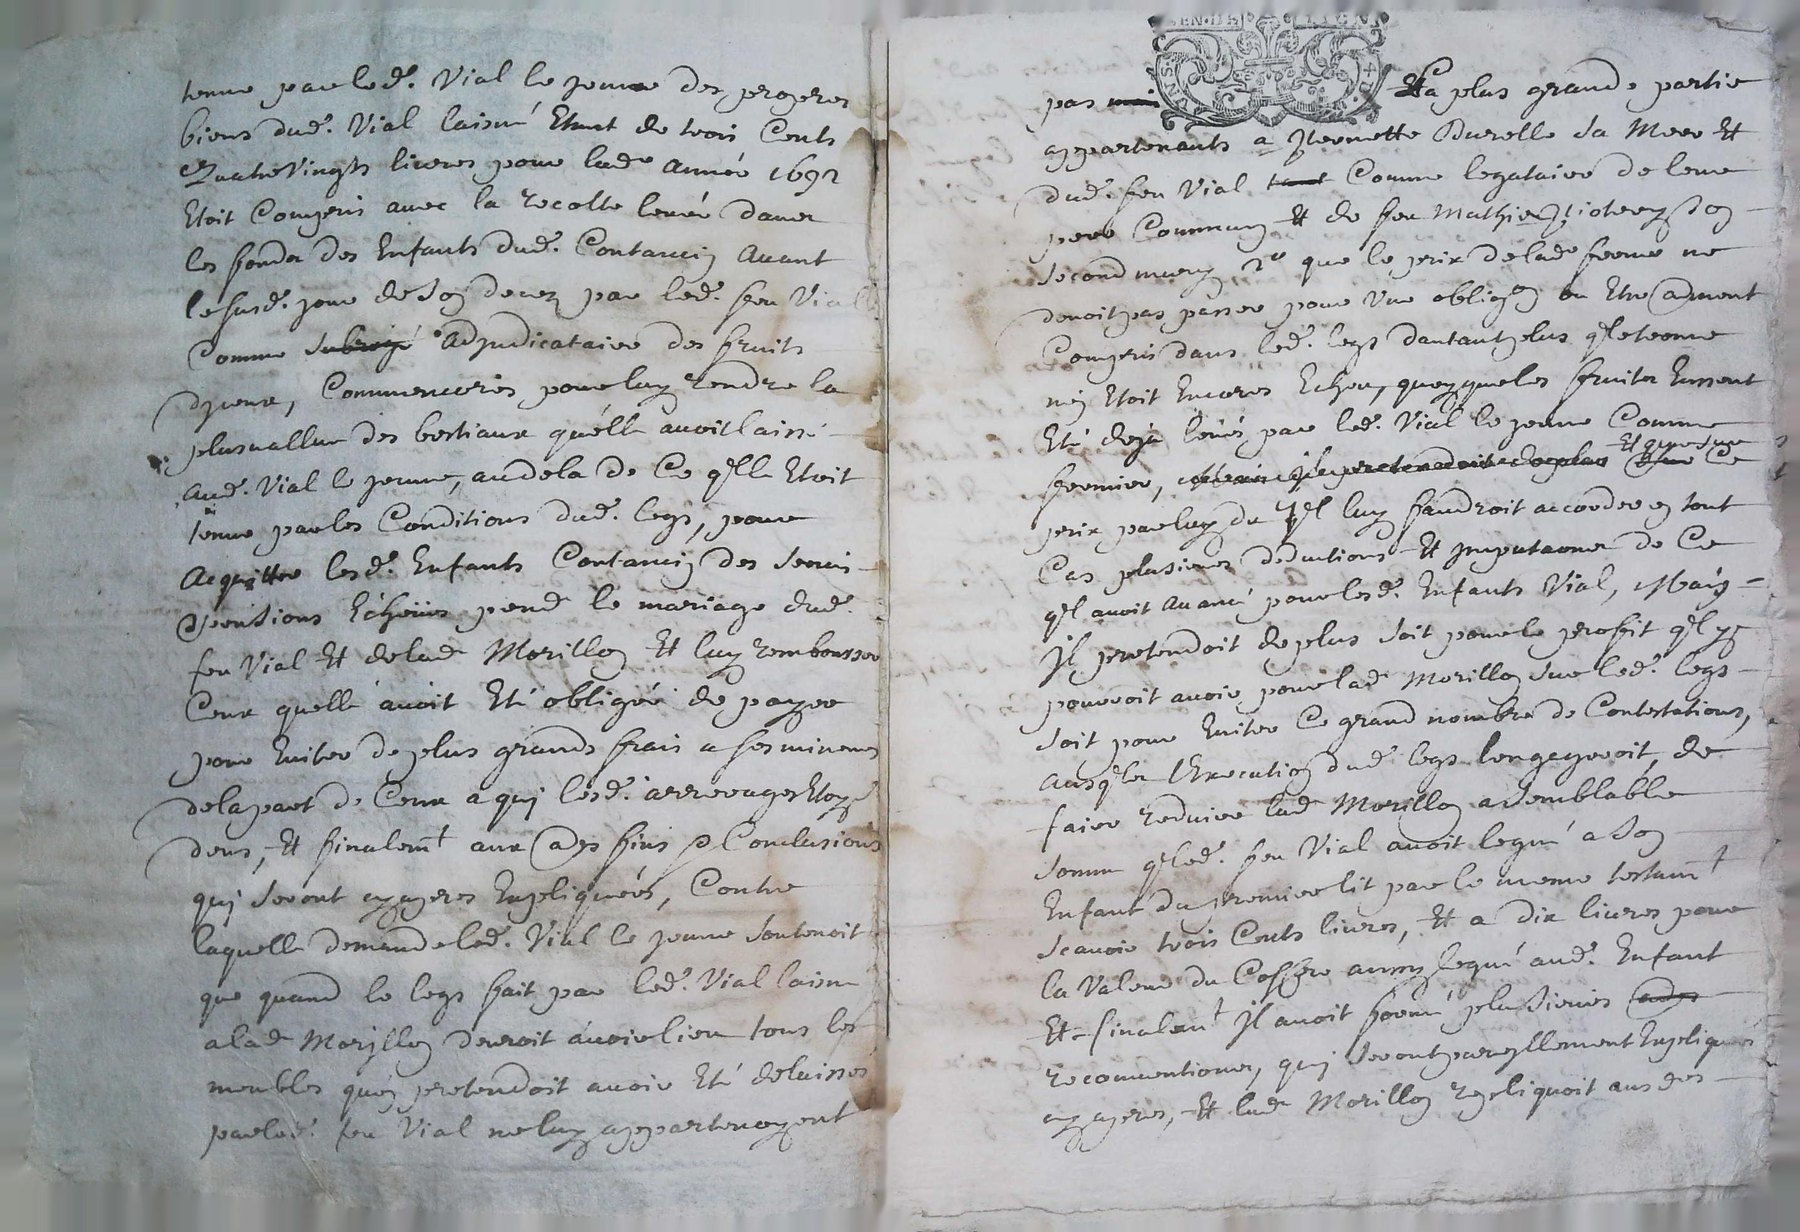 tenue par led. Vial le jeune des propres
biens dud. Vial laisné Etant de trois Cents
Quatrevingts livres pour lad. année 1692
Etoit Compris avec la recolte levée dans
les fonds des Enfants dud. Contancin Avant
le susd. jour de son decez par led. feu Vial
Comme subrogé Adjudicataire des fruits
diceux, Commenceries pour luy rendre la
plusvallue des bestiaux quelle avoit laissé
aud. Vial le jeune, audela de Ce qlle Etoit
tenue par les Conditions dud. legs, pour
Acquitter lesd. Enfants Contancin des servis
& pensions Echeües pend. le mariage dud.
feu Vial Et de lad. Morillon Et luy rembourser
Ceux quelle avoit Eté obligée de payer
pour Eviter de plus grands frais a ses mineurs
de la part de Ceux a qui lesd. arrerages Etoyt
deus, Et finalemt aux fins & Conclusions
qui seront apres Expliquées, Contre
laquelle demande led. Vial le jeune soutenoit
que quand le legs fait par led. Vial laisné
a lad. Morillon devroit avoir lieu tous les
meubles quon pretendoit avoir Eté delaissés
par led. feu Vial ne luy appartenoyent
SENS
pas mais Et la plus grande partie
appartenants a Pernette Durelle sa Mere Et
dud. feu Vial tant Comme legataire de leur
pere Commun Et de feu Mathieu son
second mary, 2o que le prix de lad. ferme ne
devoit pas passer pour Une obligon ou Etre
Compris dans led. legs dautant plus qle terme
nen Etoit Encores Echeu, quoyque les fruits Eussent
Eté deja levés par led. Vial le jeune Comme
Et que sur
fermier, il pretendoit de plus que Ce
prix par luy du Il luy faudroit accorder en tout
Cas plusieurs deductions Et Imputaons de Ce
ql avoit Avancé pour lesd. Enfants Vial, Mais
Il pretendoit de plus soit pour le profit ql y
pouvoit avoir pour lad. Morillon sur led. legs
soit pour Eviter Ce grand nombre de Contestations,
ausqles lExecution dud. legs lengageroit, de
faire reduire lad. Morillon a semblable
somme qle led. feu Vial avoit legué a son
Enfant du premier lit par le meme testamt
scavoir trois Cents livres, Et a dix livres pour
la Valeur du Coffre aussy legué aud. Enfant
Et finalemt Il avoit formé plusieurs
reconventions, qui seront pareyllement Expliquées
apres, Et lad. Morillon repliquoit aus des